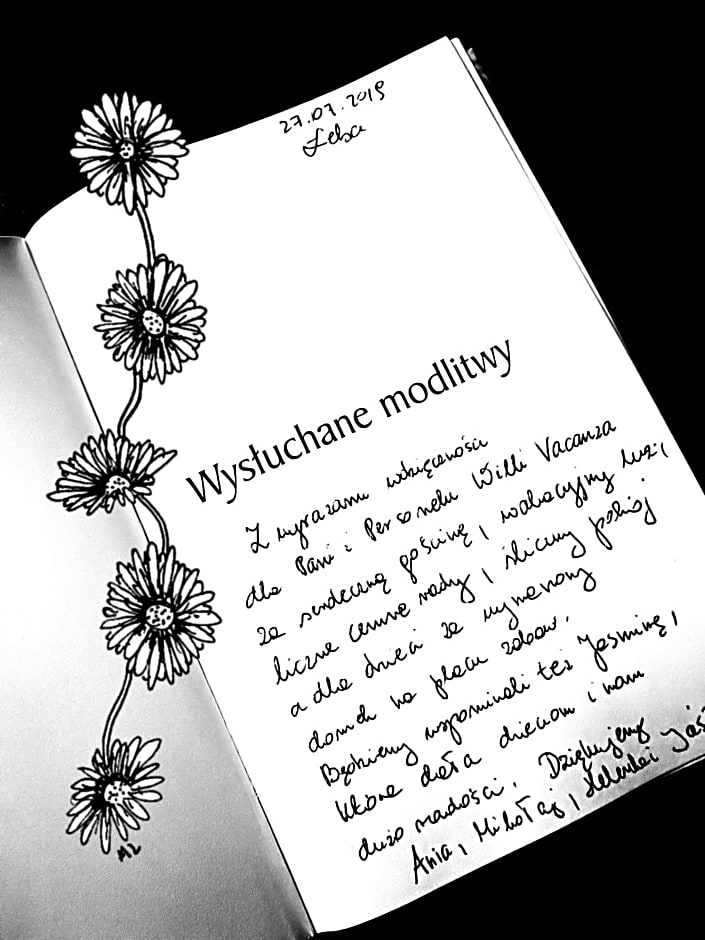 27.07.2019
Łeba
Wysłuchane modlitwy
Z wyrazami wdzięczności
dla Pani i Personelu Willi Vacanza
za serdeczną gościnę, wakacyjny luz,
liczne cenne rady, śliczny pokój
a dla dzieci za wymarzony
domek na placu zabaw.
Będziemy wspominali też Jasminę,
która dała dzieciom i nam
dużo radości. Dziękujemy
Ania, Mikołaj, Helenka i Jaś
ML